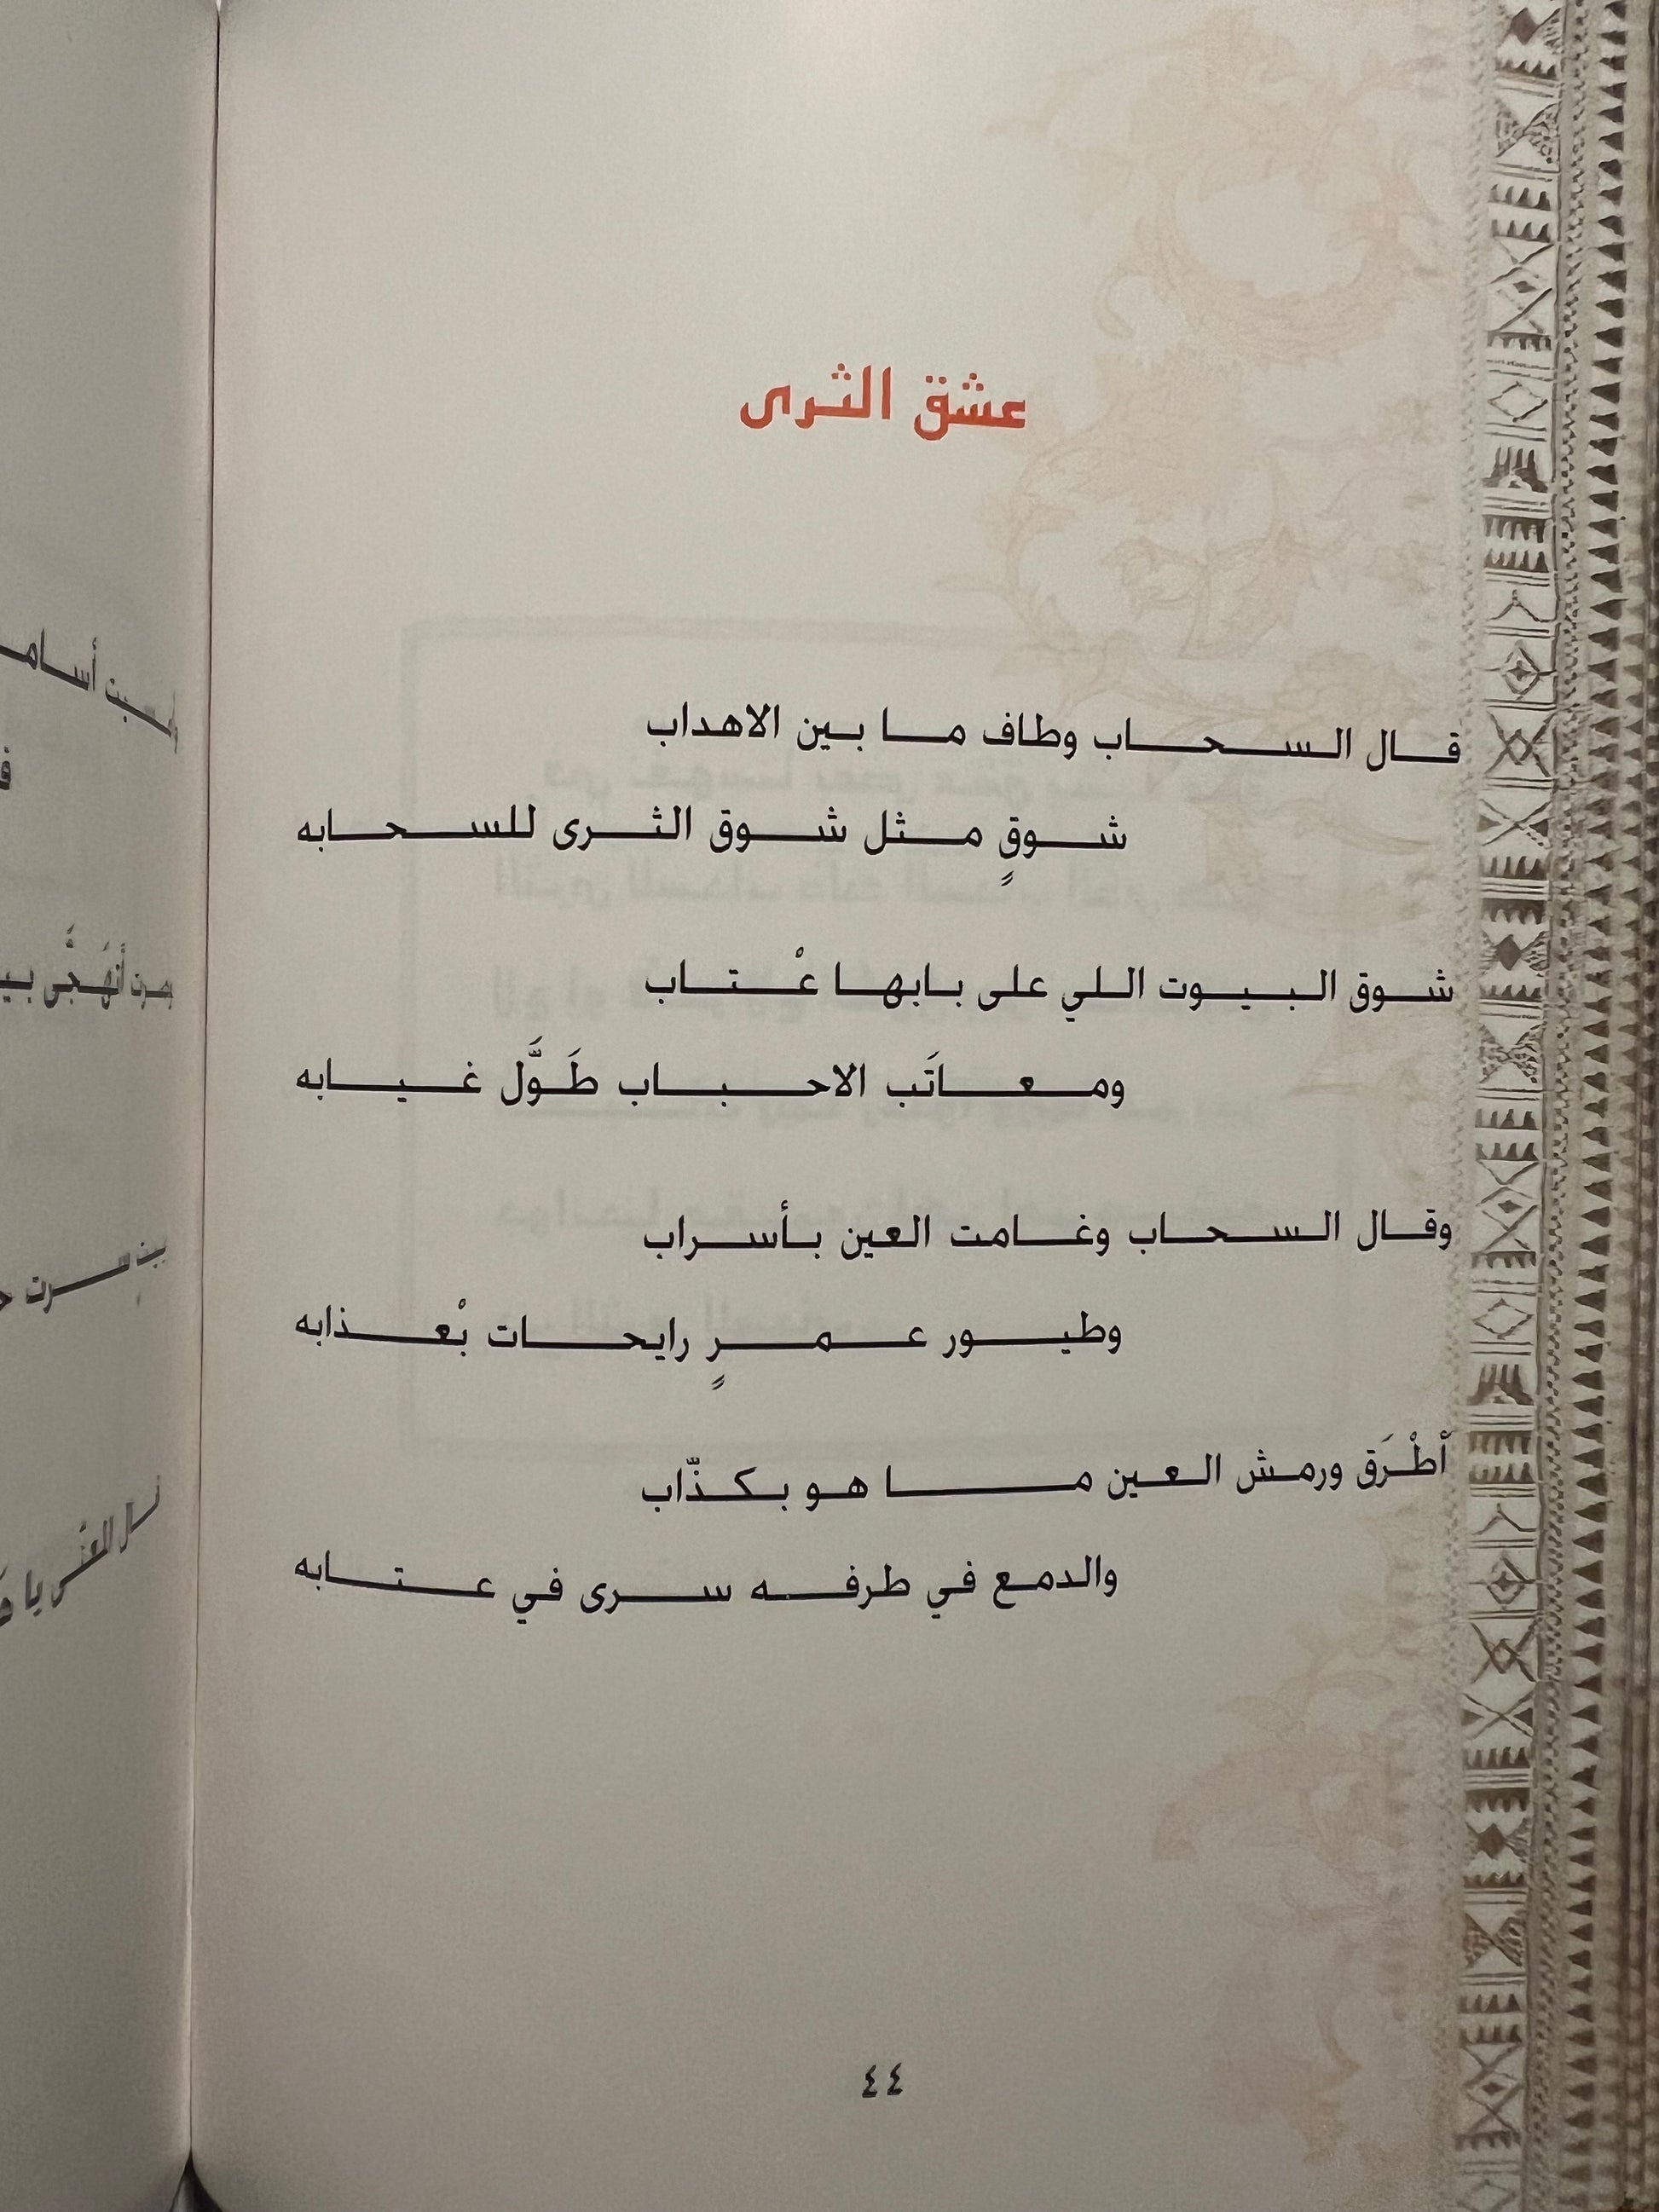 عشق الثرى
قال السحاب وطاف ما بين الاهداب
شوقٍ مثل شوق الثرى للسحابه
شوق البيوت اللي على بابها عْتاب
ومعاتَب الاحباب طَوَّل غيابه
وقال السحاب وغامت العين بأسراب
وطيور عمرٍ رايحات بْعذابه
أطْرَق ورمش العين ما هو بكذّاب
والدمع في طرفه سرى في عتابه
٤٤